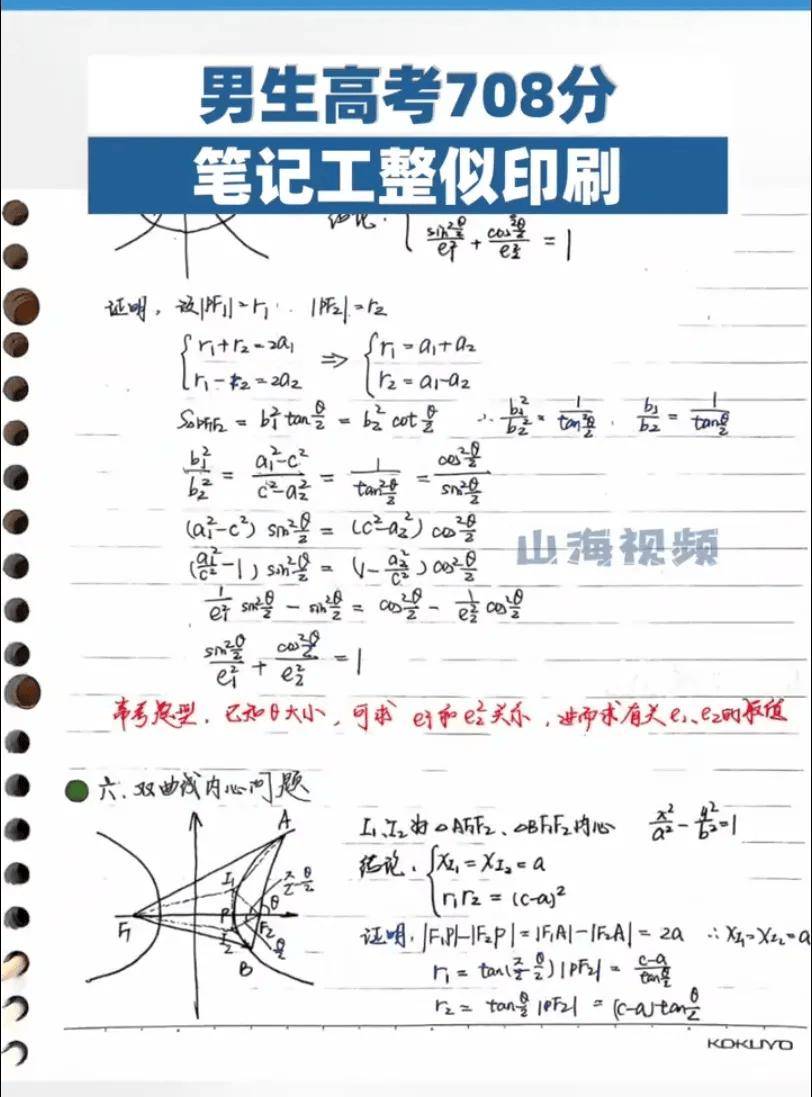 男生高考708分
笔记工整似印刷
结论. { sin²θ/2 / e₁² + cos²θ/2 / e₂² = 1
证明, 设|PF₁|=r₁. |PF₂|=r₂
{ r₁+r₂=2a₁ ⇒ { r₁=a₁+a₂
r₁-r₂=2a₂ r₂=a₁-a₂
S△PF₁F₂ = b₁² tan θ/2 = b₂² cot θ/2 ∴ b₁²/b₂² = 1/tan²θ/2 . b₁/b₂ = 1/tanθ/2
b₁²/b₂² = a₁²-c²/c²-a₂² = 1/tan²θ/2 = cos²θ/2 / sin²θ/2
(a₁²-c²) sin²θ/2 = (c²-a₂²) cos²θ/2
(a₁²/c²-1) sin²θ/2 = (1-a₂²/c²) cos²θ/2
山海视频
1/e₁² sin²θ/2 - sin²θ/2 = cos²θ/2 - 1/e₂² cos²θ/2
sin²θ/2 / e₁² + cos²θ/2 / e₂² = 1
常考题型, 已知θ大小, 可求 e₁²和e₂²关系, 进而求有关e₁、e₂的最值
六. 双曲线内心问题
I₁、I₂为△AF₁F₂、△BF₁F₂内心 x²/a² - y²/b² = 1
结论. { x_I₁ = x_I₂ = a
r₁r₂ = (c-a)²
A
I₁
π/2 - θ/2
θ
F₁
P
F₂
I₂
B
θ/2
证明. |F₁P|-|F₂P| = |F₁A|-|F₂A| = 2a ∴ x_I₁=x_I₂=a
r₁ = tan(π/2-θ/2)|PF₂| = c-a / tanθ/2
r₂ = tanθ/2 |PF₂| = (c-a) tanθ/2
KOKUYO